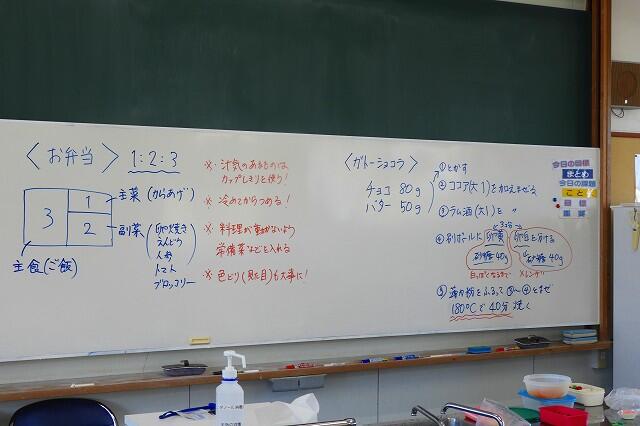 〈お弁当〉 1:2:3
3
1
2
主菜(からあげ)
副菜
卵焼き
えんどう
人参
トマト
ブロッコリー
主食(ご飯)
※・汁気のあるものは
カップしきりを使う!
※・冷めてからつめる!
※・料理が動かないよう
常備菜などを入れる
※ 色どり(見た目)も大事に!
〈ガトーショコラ〉
チョコ 80g
バター 50g
①とかす
②ココア(大1)を加えまぜる
③ラム酒(大1)を 〃
④別ボールに卵黄 卵白を分ける
砂糖40g
砂糖40g
白っぽくなるまで
メレンゲ
⑤薄力粉をふるって③〜④とまぜ
180℃で40分焼く
今日の目標
まとめ
今日の課題
こと
目標
重要